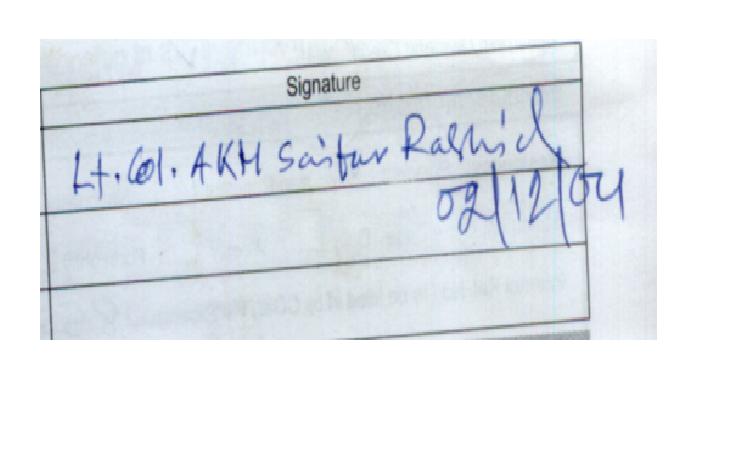 Signature
Lt. Col. AKM Saifur Rashid
02/12/04